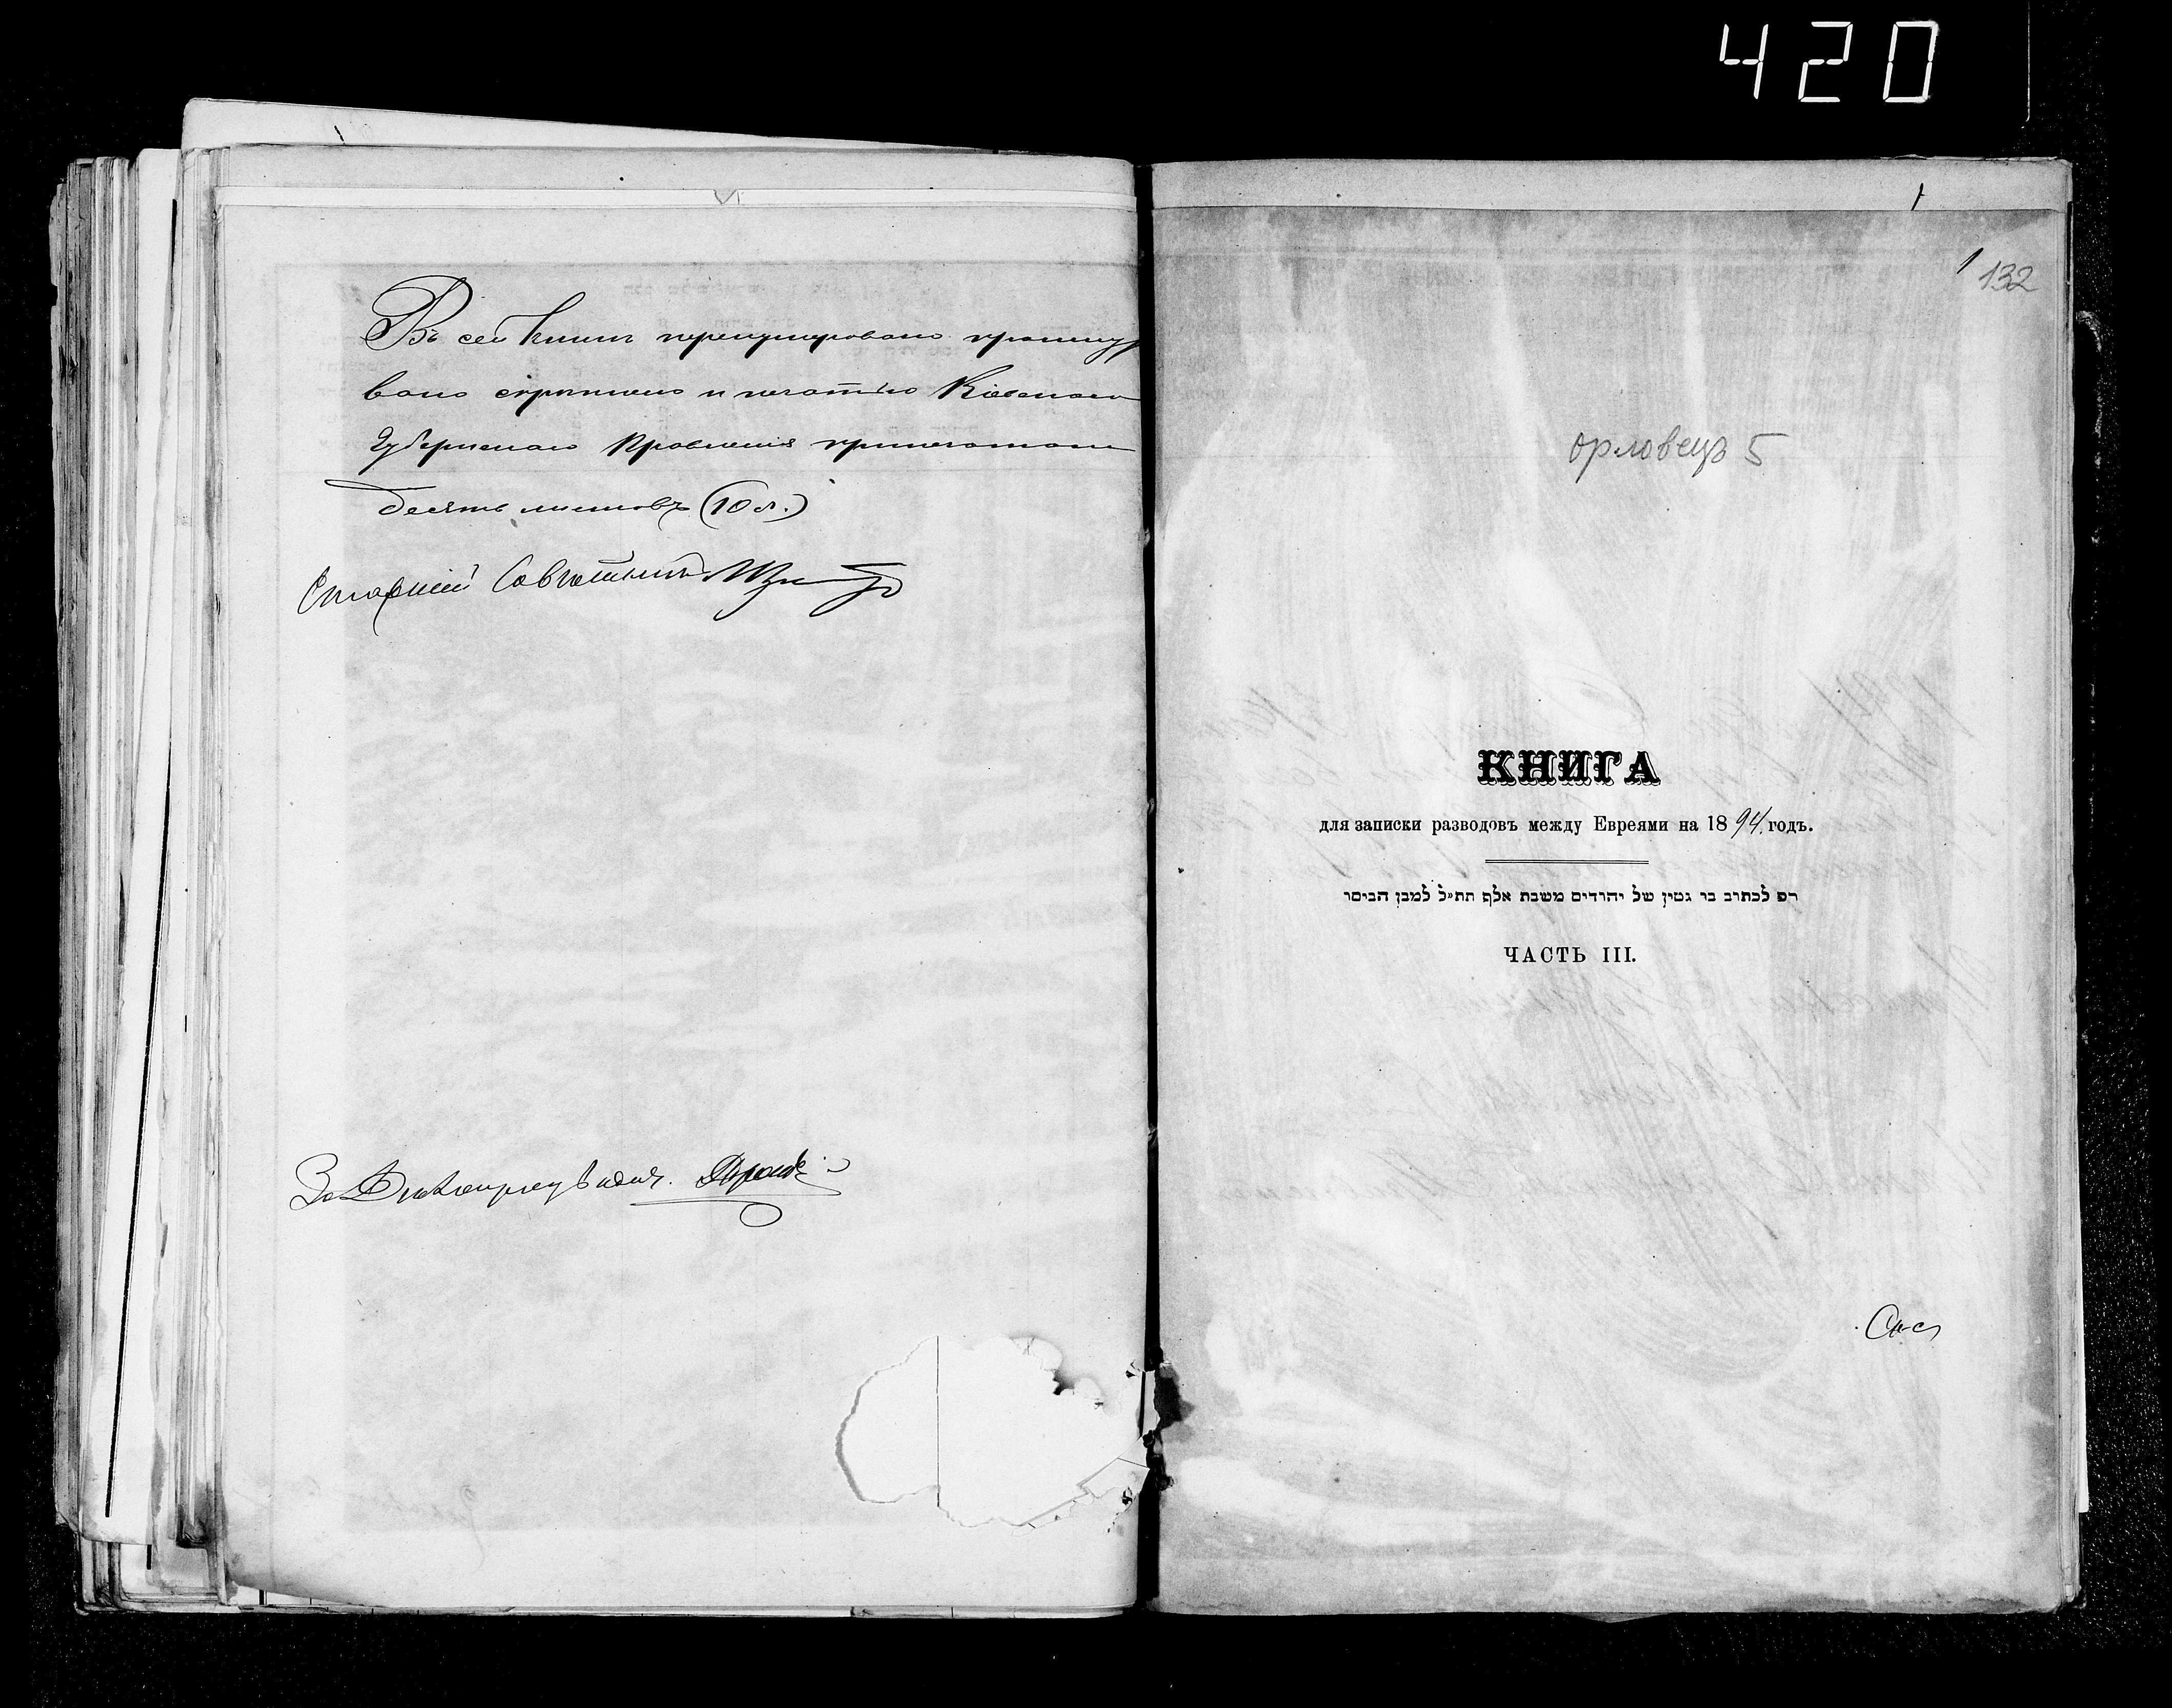 420
Въ сей книгѣ перенумеровано прошнуро
вано скрѣплено и печатью Кіевскаго
Губернскаго Правленія припечатано
десять листовъ (10 л.)
Старшій Совѣтникъ
За Дѣлопроизводит.
1
1 132
орловецъ 5
КНИГА
для записки разводовъ между Евреями на 1894 годъ.
רפ לכתוב בו גטין של יהודים משבת אלף תת״ל למבן הביסו
ЧАСТЬ III.